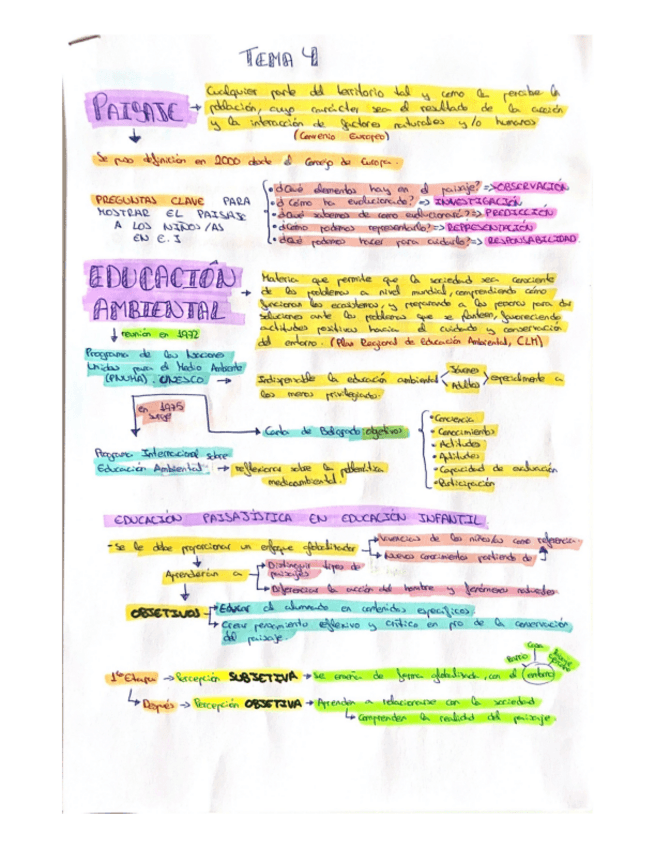 TEMA 4
PAISAJE → Cualquier parte del territorio tal y como la percibe la
población, cuyo carácter sea el resultado de la acción
y la interacción de factores naturales y/o humanos
(Convenio Europeo)
Se puso definición en 2000 desde el Consejo de Europa.
PREGUNTAS CLAVE PARA
MOSTRAR EL PAISAJE
A LOS NIÑOS/AS
EN E.I
• ¿Qué elementos hay en el paisaje? => OBSERVACIÓN
• ¿Cómo ha evolucionado? => INVESTIGACIÓN
• ¿Qué sabemos de como evolucionará? => PREDICCIÓN
• ¿Cómo podemos representarlo? => REPRESENTACIÓN
• ¿Qué podemos hacer para cuidarlo? => RESPONSABILIDAD
EDUCACIÓN
AMBIENTAL →
Materia que permite que la sociedad sea consciente
de los problemas a nivel mundial, comprendiendo cómo
funcionan los ecosistemas, y preparando a las personas para dar
soluciones ante los problemas que se plantean, favoreciendo
actitudes positivas hacia el cuidado y conservación
del entorno. (Plan Regional de Educación Ambiental, CLM)
reunión en 1972
Programa de las Naciones
Unidas para el Medio Ambiente
(PNUMA). UNESCO →
Indispensable la educación ambiental
Jóvenes
Adultos
especialmente a
los menos privilegiados.
en 1975
surge
Carta de Belgrado objetivos
• Conciencia
• Conocimientos
• Actitudes
• Aptitudes
• Capacidad de evaluación
• Participación
Programa Internacional sobre
Educación Ambiental → reflexionar sobre la problemática
medioambiental.
EDUCACIÓN PAISAJÍSTICA EN EDUCACIÓN INFANTIL
- Se le debe proporcionar un enfoque globalizador
Vivencias de los niños/as como referencia
Nuevos conocimientos partiendo de
Aprenderán a
Distinguir tipos de
paisajes
Diferenciar la acción del hombre y fenómenos naturales
OBJETIVOS
Educar al alumnado en contenidos específicos
Crear pensamiento reflexivo y crítico en pro de la conservación
del paisaje.
Casa
Barrio
1ª Etapa → Percepción SUBJETIVA → Se enseña de forma globalizada, con el entorno
Después → Percepción OBJETIVA → Aprenden a relacionarse con la sociedad
Comprenden la realidad del paisaje.